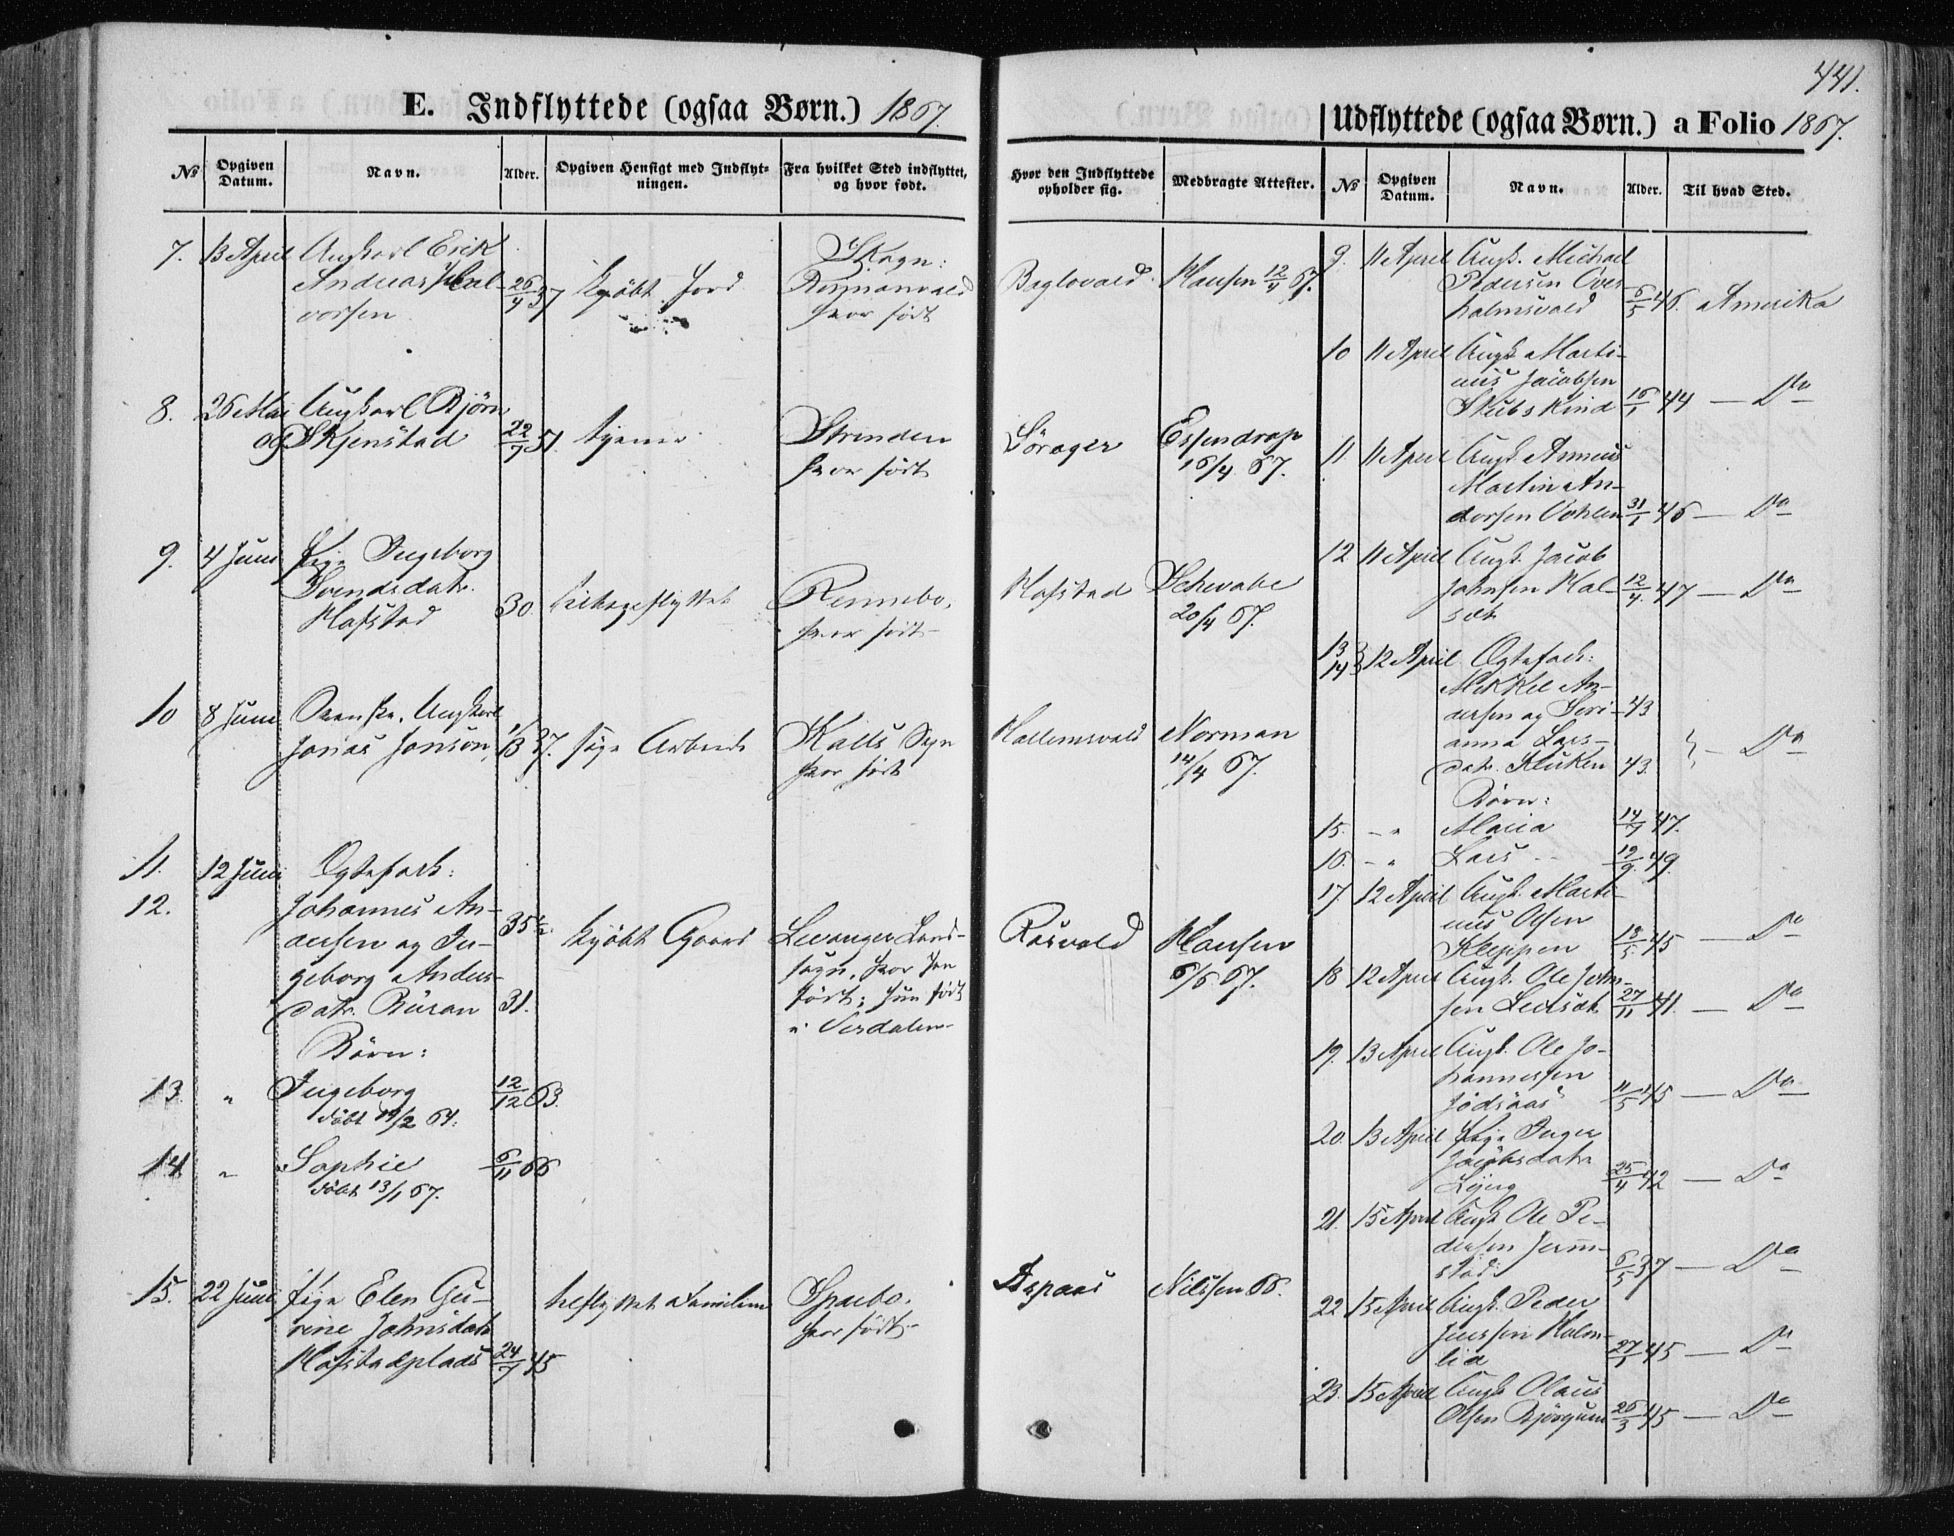 441.
E. Indflyttede (ogsaa Børn.) 1867.
No
Opgiven Datum.
Navn.
Alder.
Opgiven Hensigt med Indflyt-
ningen.
Fra hvilket Sted indflyttet,
og hvor født.
Hvor den Indflyttede
opholder sig.
Medbragte Attester.
7. 13 April Ungkarl Erik
Andreas Hal-
vorsen 26/4 37 kjøbt Jord
Skogn:
hvor født
Hansen 12/4 67.
8. 26 Mai Ungkarl Bjørn
Skjenstad 22/7 51. tjene
Strinden
hvor født
Sørager
Essendrop
16/4 67.
9. 4 Juni Pige Ingeborg
Svendsdatr.
Hofstad 30 tilbageflyttet
Rennebo,
hvor født
Hofstad
Schwabe
20/4 67.
10 8 Juni Svenske, Ungkarl
Jonas Jonson, 1/3 37. søge Arbeide
Kalls Sogn
hvor født
Hallemsvald
Norman
14/4 67.
11. 12 Juni Ægtefolk:
12. Johannes An-
dersen og In-
geborg Anders-
datr. Buran
35 1/2
31.
kjøbt Gaard
Levanger Land-
sogn, hvor han
født; hun født
i Verdalen
Hansen
6/6 67.
Børn:
13 " Ingeborg 12/12 63.
døbt 14/2 64.
14 " Sophie 6/11 66
døbt 13/1 67.
15. 22 Juni Pige Elen Gu-
rine Johnsdatr
Hofstadplads 24/7 45
tilflyttet Familien
Sparbo.
hvor født
Aspaas
Nilssen 66.
Udflyttede (ogsaa Børn.) a Folio 1867.
No
Opgiven Datum.
Navn.
Alder.
Til hvad Sted.
9. 11 April Ungk. Michael
Pedersen Over
holmsvald 6/5 46. Amerika
10 11 April Ungk. Marti-
nus Jacobsen
Skubskind 16/1 44 — Do
11. 11 April Ungk. Annæus
Martin An-
dersen Vohlen 31/1 46 — Do
12 11 April Ungk. Jacob
Johnsen Hal-
set 12/4. 47 — Do
13
14 } 12 April Ægtefolk:
Mikkel An-
dersen og Seri- 43
anna Lars-
datr. Kluken 43. } — Do
Børn:
15. - " Maria 14/7 47.
16. - " Lars 12/9 49.
17. 12 April Ungk. Marti-
nus Olsen
Kleppen 13/5. 45 — Do
18 12 April Ungk. Ole John-
sen 27/11 41. — Do
19. 13 April Ungk. Ole Jo-
hannessen
11/5 45 — Do
20. 13 April Pige Inger
Jacobsdatr
25/4 42 — Do
21. 15 April Ungk. Ole Pe-
dersen Jerm-
stad 6/5 37 — Do
22. 15 April Ungk. Peder
Jenssen Holm-
lia 27/1 45 — Do
23. 15 April Ungk. Olaus
Olsen Bjørgum 26/3 45 — Do